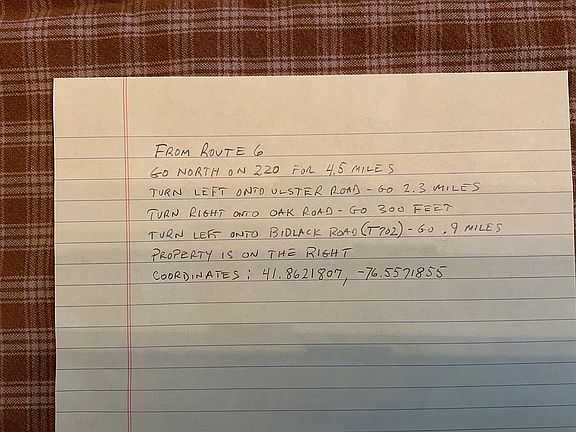 FROM ROUTE 6
GO NORTH ON 220 FOR 4.5 MILES
TURN LEFT ONTO ULSTER ROAD - GO 2.3 MILES
TURN RIGHT ONTO OAK ROAD - GO 300 FEET
TURN LEFT ONTO BIDLACK ROAD (T702) - GO .9 MILES
PROPERTY IS ON THE RIGHT
COORDINATES: 41.8621807, -76.5571855